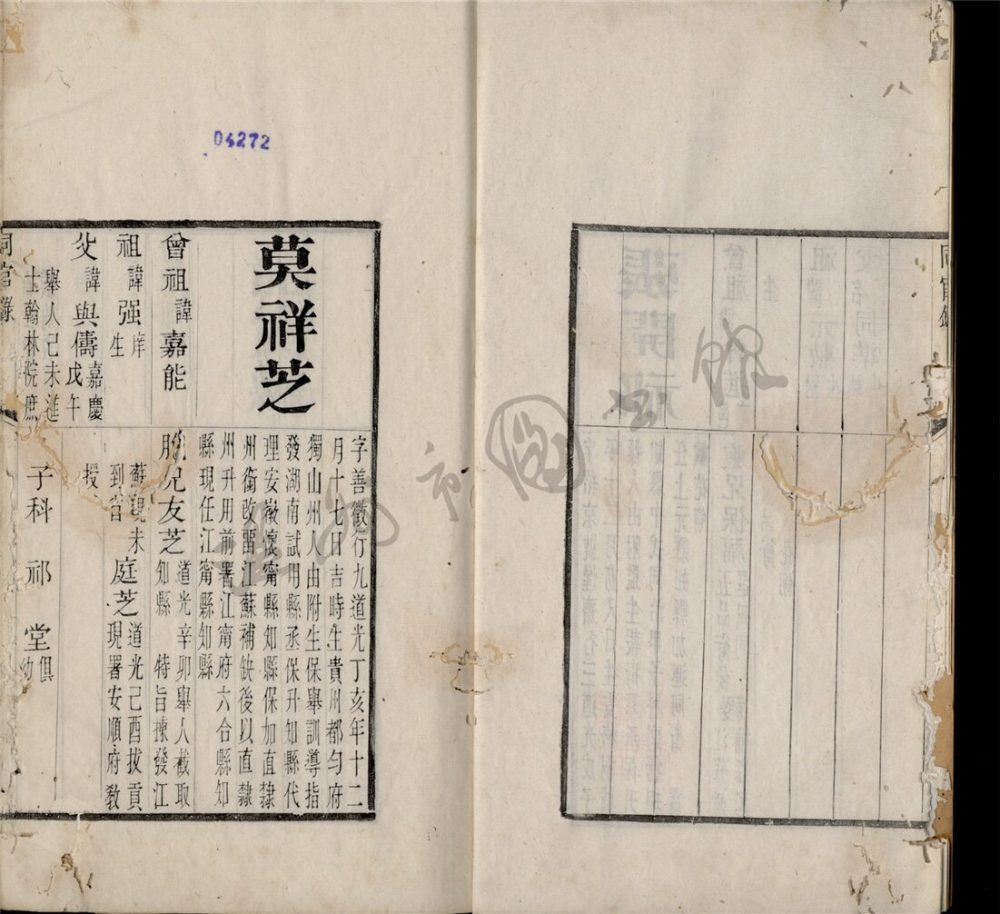 04272
同官錄
莫祥芝
字善徵行九道光丁亥年十二
月十七日吉時生貴州都勻府
獨山州人由附生保舉訓導指
發湖南試用縣丞保升知縣代
理安徽懷甯縣知縣保加直隸
州銜改留江蘇補缺後以直隸
州升用前署江甯府六合縣知
縣現任江甯縣知縣
曾祖諱嘉能
祖諱强庠生
父諱與儔嘉慶戊午
舉人己未進
士翰林院庶
胞兄友芝道光辛卯舉人截取
知縣 特旨揀發江
蘇現未到省
庭芝道光己酉拔貢
現署安順府教
授
子科 祁 堂俱幼
同官錄
市圖書館